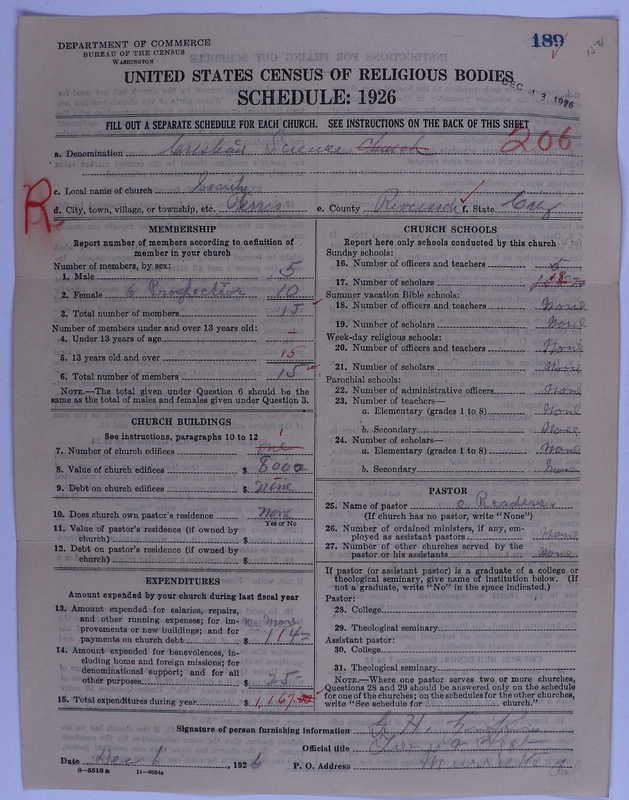 189
DEPARTMENT OF COMMERCE
BUREAU OF THE CENSUS
WASHINGTON
UNITED STATES CENSUS OF RELIGIOUS BODIES
DEC 13 1926
SCHEDULE: 1926
FILL OUT A SEPARATE SCHEDULE FOR EACH CHURCH. SEE INSTRUCTIONS ON THE BACK OF THIS SHEET
206
a. Denomination Christian Science Church
c. Local name of church Society
R
d. City, town, village, or township, etc. Perris e. County Riverside f. State Cal
MEMBERSHIP
Report number of members according to definition of
member in your church
Number of members, by sex:
1. Male 5
2. Female 6 Prospective 10
3. Total number of members 15
Number of members under and over 13 years old:
4. Under 13 years of age
5. 13 years old and over 15
6. Total number of members 15
NOTE.—The total given under Question 6 should be
same as the total of males and females given under Question 3.
CHURCH BUILDINGS
See instructions, paragraphs 10 to 12
7. Number of church edifices one 1
8. Value of church edifices $ 8000
9. Debt on church edifices $ None
10. Does church own pastor's residence None
Yes or No
11. Value of pastor's residence (if owned by
church) $
12. Debt on pastor's residence (if owned by
church) $
EXPENDITURES
Amount expended by your church during last fiscal year
13. Amount expended for salaries, repairs,
and other running expenses; for im-
provements or new buildings; and for
payments on church debt $
14. Amount expended for benevolences, in-
cluding home and foreign missions; for
denominational support; and for all
other purposes $ 25
15. Total expenditures during year $ 1,167
CHURCH SCHOOLS
Report here only schools conducted by this church
Sunday schools:
16. Number of officers and teachers 5
17. Number of scholars
Summer vacation Bible schools:
18. Number of officers and teachers None
19. Number of scholars None
Week-day religious schools:
20. Number of officers and teachers None
21. Number of scholars None
Parochial schools:
22. Number of administrative officers None
23. Number of teachers—
a. Elementary (grades 1 to 8) None
b. Secondary None
24. Number of scholars—
a. Elementary (grades 1 to 8) None
b. Secondary None
PASTOR
25. Name of pastor 2 Readers
(If church has no pastor, write "None")
26. Number of ordained ministers, if any, em-
ployed as assistant pastors None
27. Number of other churches served by the
pastor or his assistants None
If pastor (or assistant pastor) is a graduate of a college or
theological seminary, give name of institution below. (If
not a graduate, write "No" in the space indicated.)
Pastor:
28. College
29. Theological seminary
Assistant pastor:
30. College
31. Theological seminary
NOTE.—Where one pastor serves two or more churches,
Questions 28 and 29 should be answered only on the schedule
for one of the churches; on the schedules for the other churches,
write "See schedule for church."
Signature of person furnishing information G. H.
Official title
Date Dec 6, 1926 P. O. Address Murrieta Cal
8-5518a 11-9034a